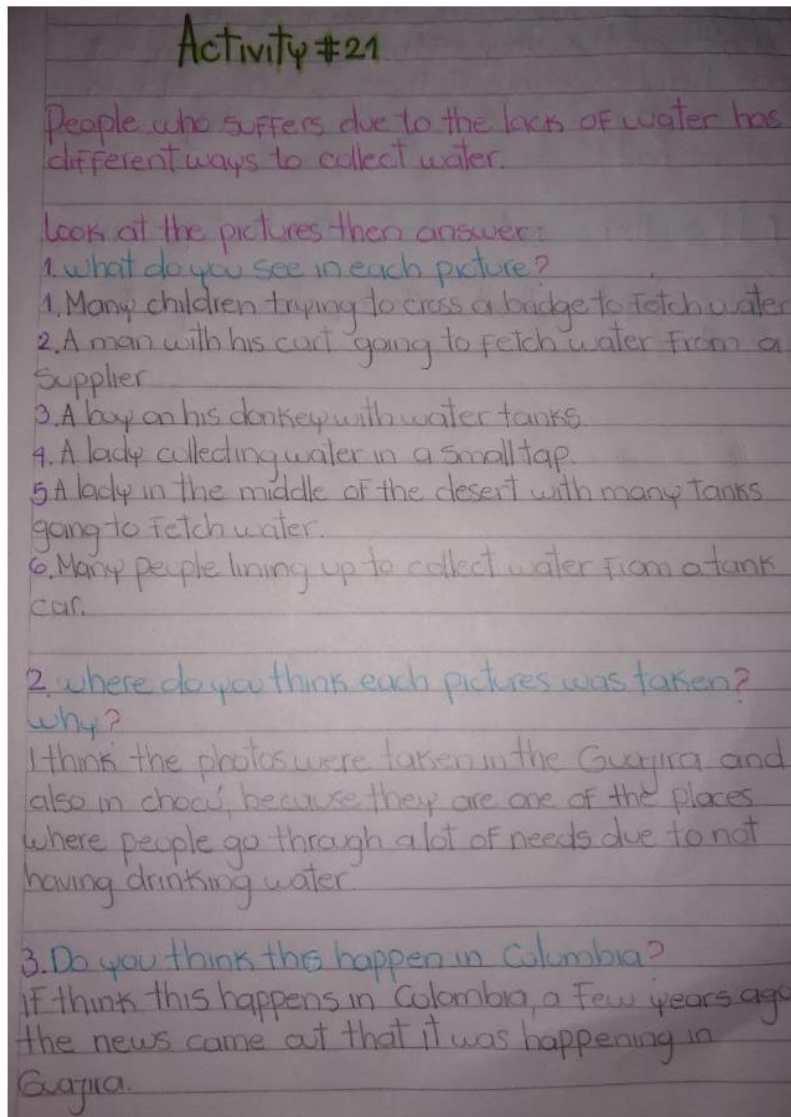 Activity #21
People who suffers due to the lack of water has
different ways to collect water.
Look at the pictures then answer:
1. what do you see in each picture?
1. Many children trying to cross a bridge to fetch water
2. A man with his cart going to fetch water from a
supplier
3. A boy on his donkey with water tanks.
4. A lady collecting water in a small tap.
5 A lady in the middle of the desert with many tanks
going to fetch water.
6. Many people lining up to collect water from a tank
car.
2. where do you think each pictures was taken?
why?
I think the photos were taken in the Guajira and
also in chocó, because they are one of the places
where people go through a lot of needs due to not
having drinking water.
3. Do you think this happen in Colombia?
If think this happens in Colombia, a few years ago
the news came out that it was happening in
Guajira.